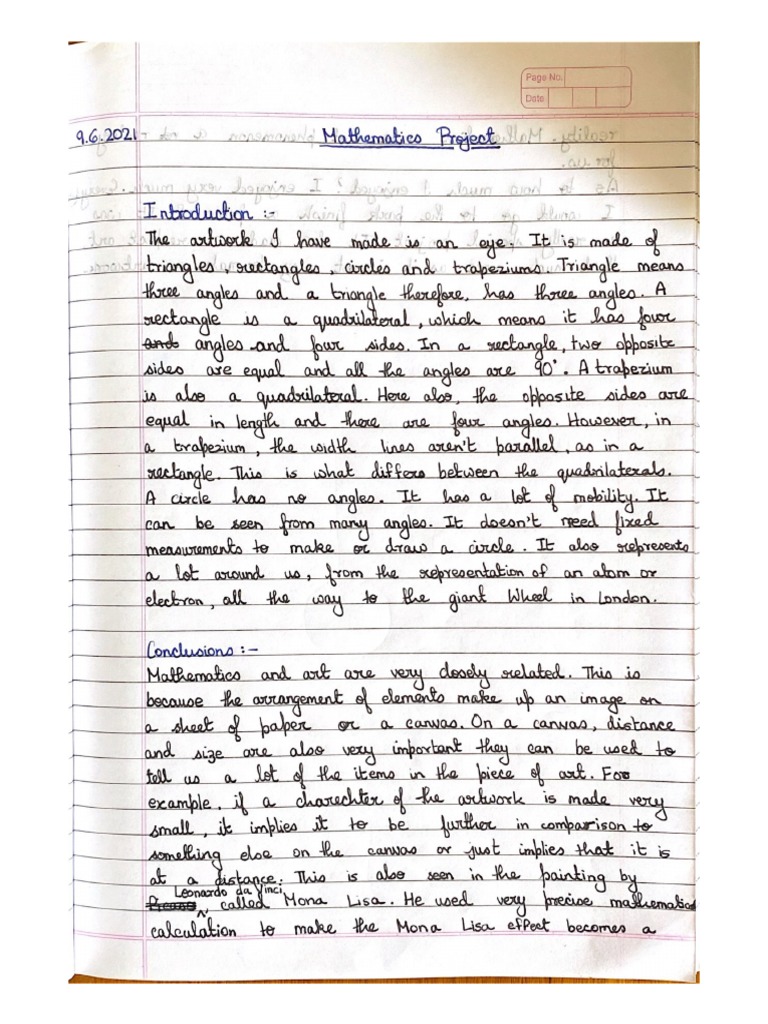 Page No.
Date
9.6.2021
Mathematics Project
Introduction :-
The artwork I have made is an eye. It is made of
triangles, rectangles, circles and trapeziums. Triangle means
three angles and a triangle therefore, has three angles. A
rectangle is a quadrilateral, which means it has four
and angles and four sides. In a rectangle, two opposite
sides are equal and all the angles are 90°. A trapezium
is also a quadrilateral. Here also, the opposite sides are
equal in length and there are four angles. However, in
a trapezium, the width lines aren't parallel, as in a
rectangle. This is what differs between the quadrilaterals.
A circle has no angles. It has a lot of mobility. It
can be seen from many angles. It doesn't need fixed
measurements to make or draw a circle. It also represents
a lot around us, from the representation of an atom or
electron, all the way to the giant Wheel in London.
Conclusions :-
Mathematics and art are very closely related. This is
because the arrangement of elements make up an image on
a sheet of paper or a canvas. On a canvas, distance
and size are also very important they can be used to
tell us a lot of the items in the piece of art. For
example, if a charechter of the artwork is made very
small, it implies it to be further in comparison to
something else on the canvas or just implies that it is
at a distance. This is also seen in the painting by
Leonardo da Vinci
called Mona Lisa. He used very precise mathematical
calculation to make the Mona Lisa effect becomes a